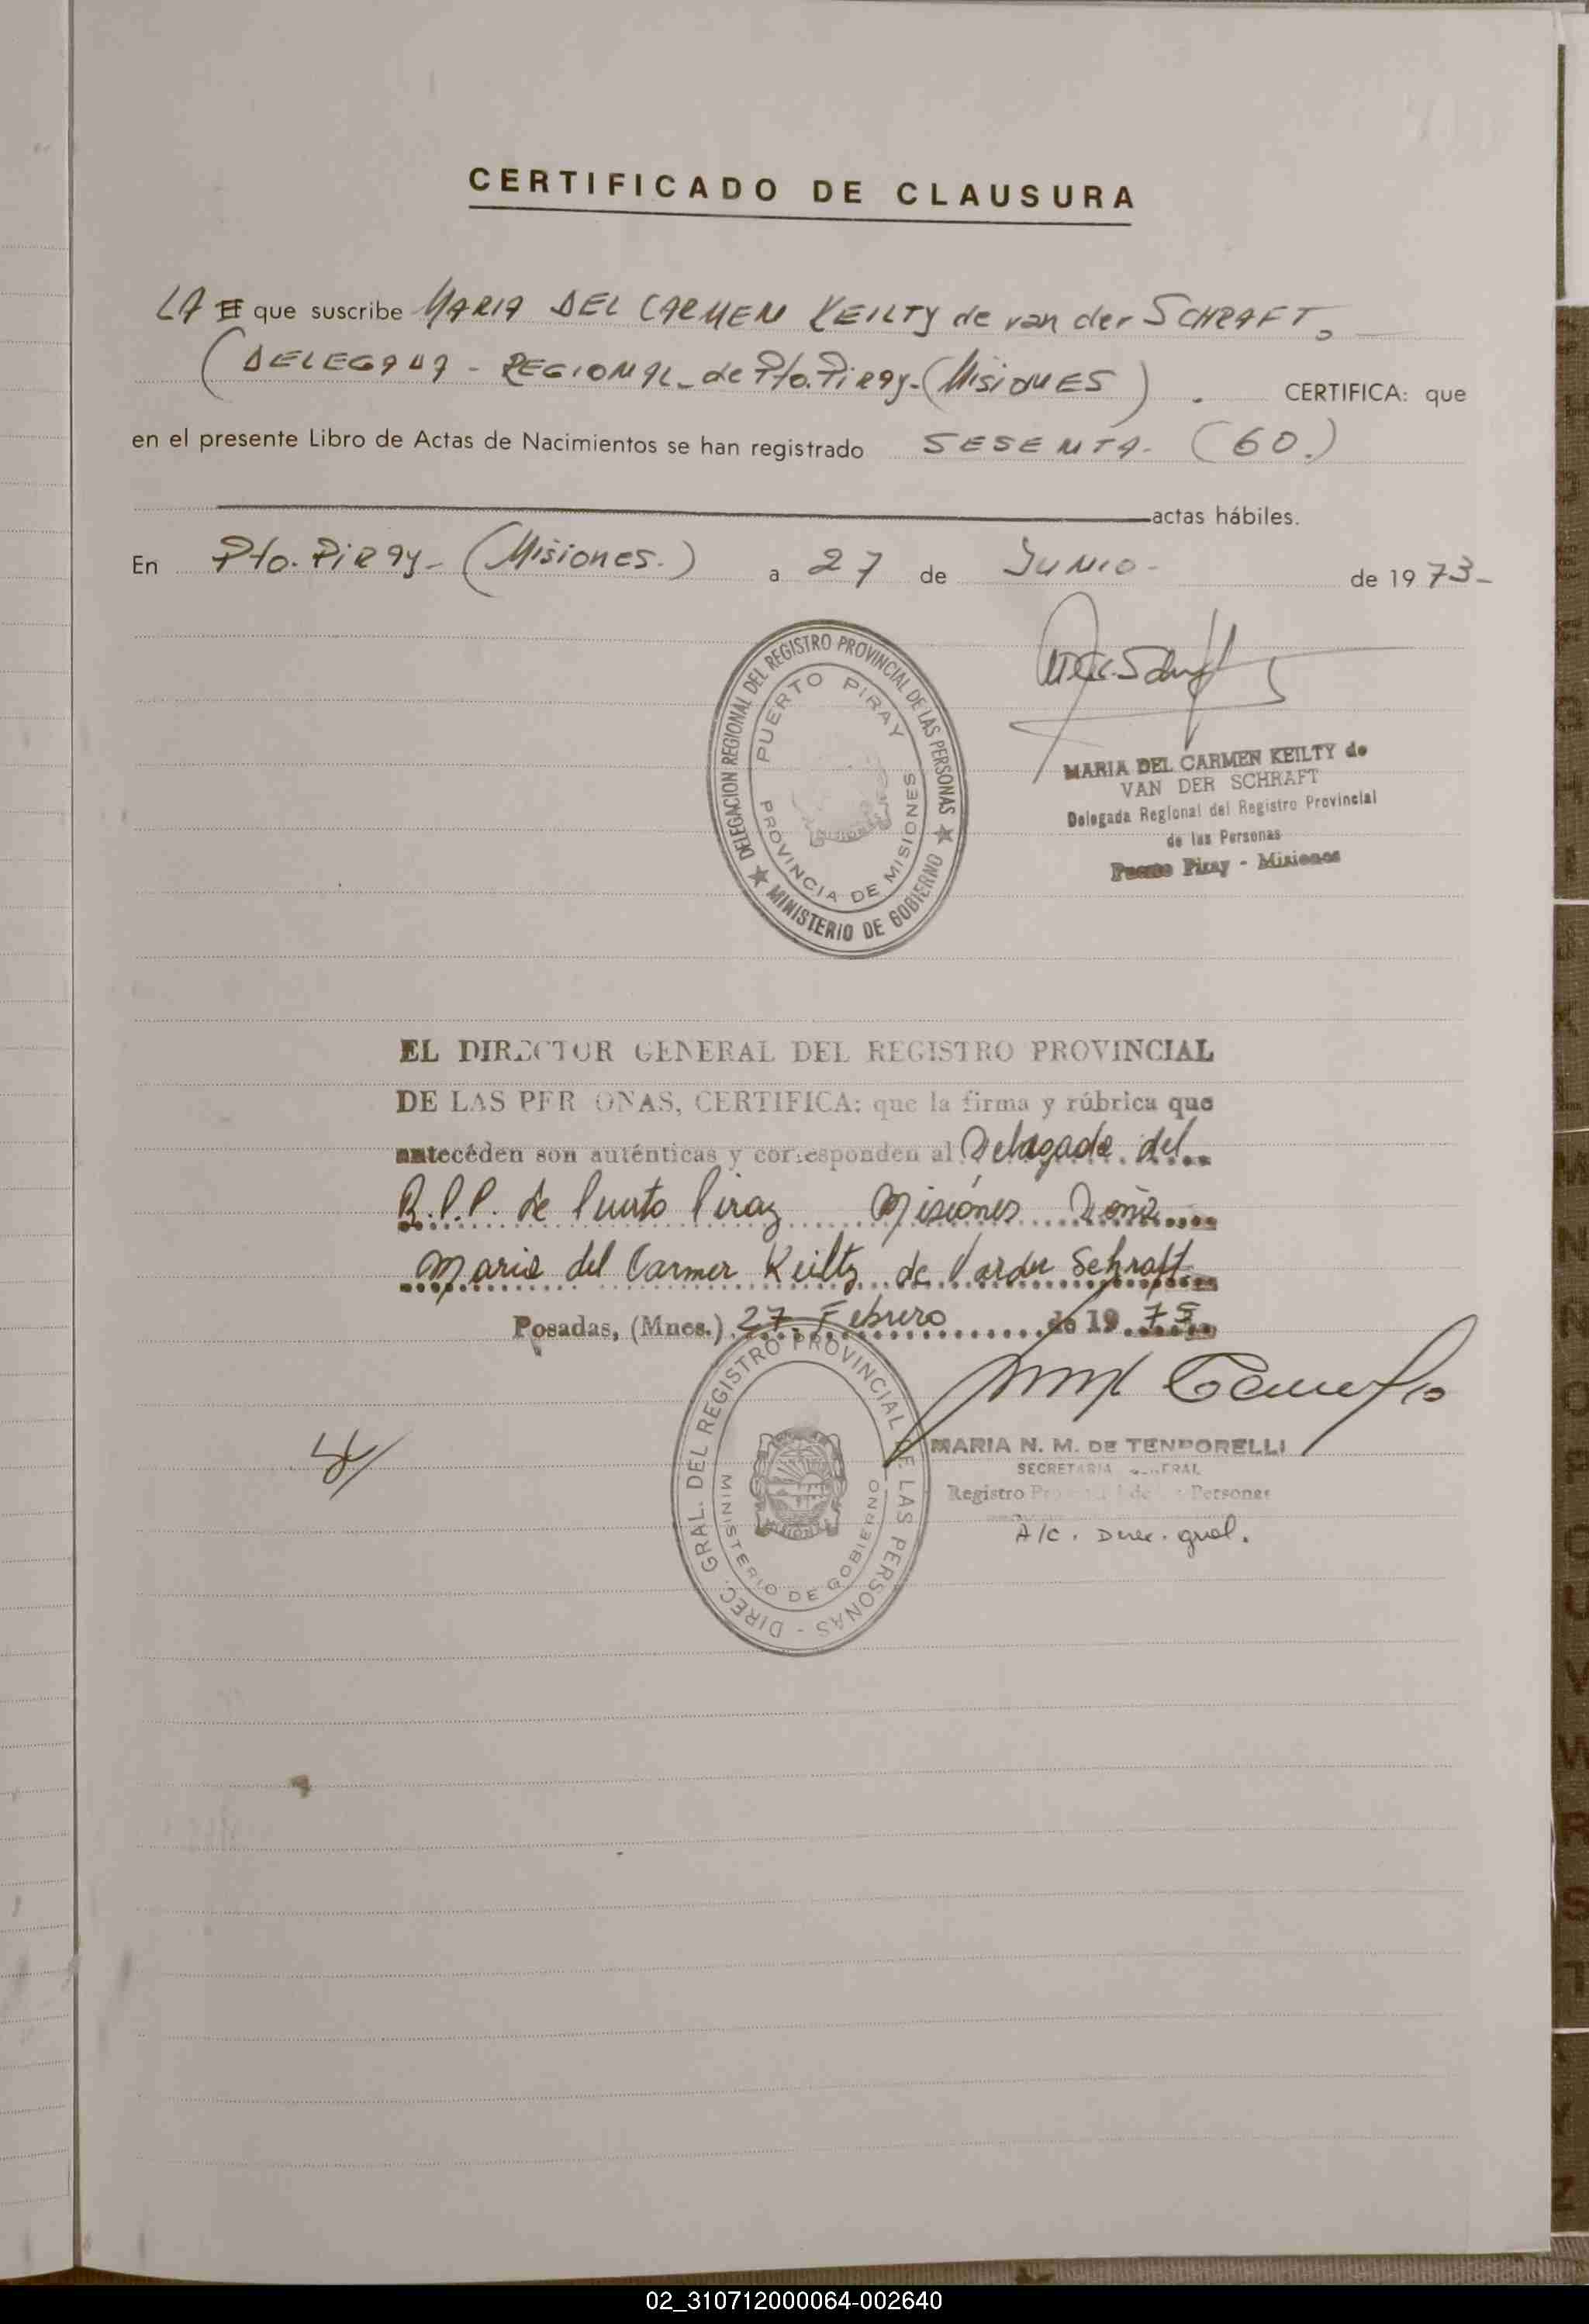 CERTIFICADO DE CLAUSURA
LA El que suscribe MARIA DEL CARMEN KEILTY de van der SCHRAFT,
(DELEGADA - REGIONAL - de Pto. Piray - (Misiones) . CERTIFICA: que
en el presente Libro de Actas de Nacimientos se han registrado SESENTA - (60.)
actas hábiles.
En Pto. Piray - (Misiones.) a 27 de Junio - de 1973-
DELEGACION REGIONAL DEL REGISTRO PROVINCIAL DE LAS PERSONAS
★ MINISTERIO DE GOBIERNO ★
PUERTO PIRAY
PROVINCIA DE MISIONES
MARIA DEL CARMEN KEILTY de
VAN DER SCHRAFT
Delegada Regional del Registro Provincial
de las Personas
Puerto Piray - Misiones
EL DIRECTOR GENERAL DEL REGISTRO PROVINCIAL
DE LAS PER ONAS, CERTIFICA: que la firma y rúbrica que
anteceden son auténticas y corresponden al Delegada del
R.P.P. de Puerto Piray Misiones Doña
Maria del Carmen Keilty de Varder Schraft
Posadas, (Mnes.) 27 Febrero de 1975
DIREC. GRAL. DEL REGISTRO PROVINCIAL DE LAS PERSONAS -
MINISTERIO DE GOBIERNO
MARIA N. M. DE TEMPORELLI
SECRETARIA GENERAL
Registro Provincial de las Personas
A/c. Direc. gral.
02_310712000064-002640